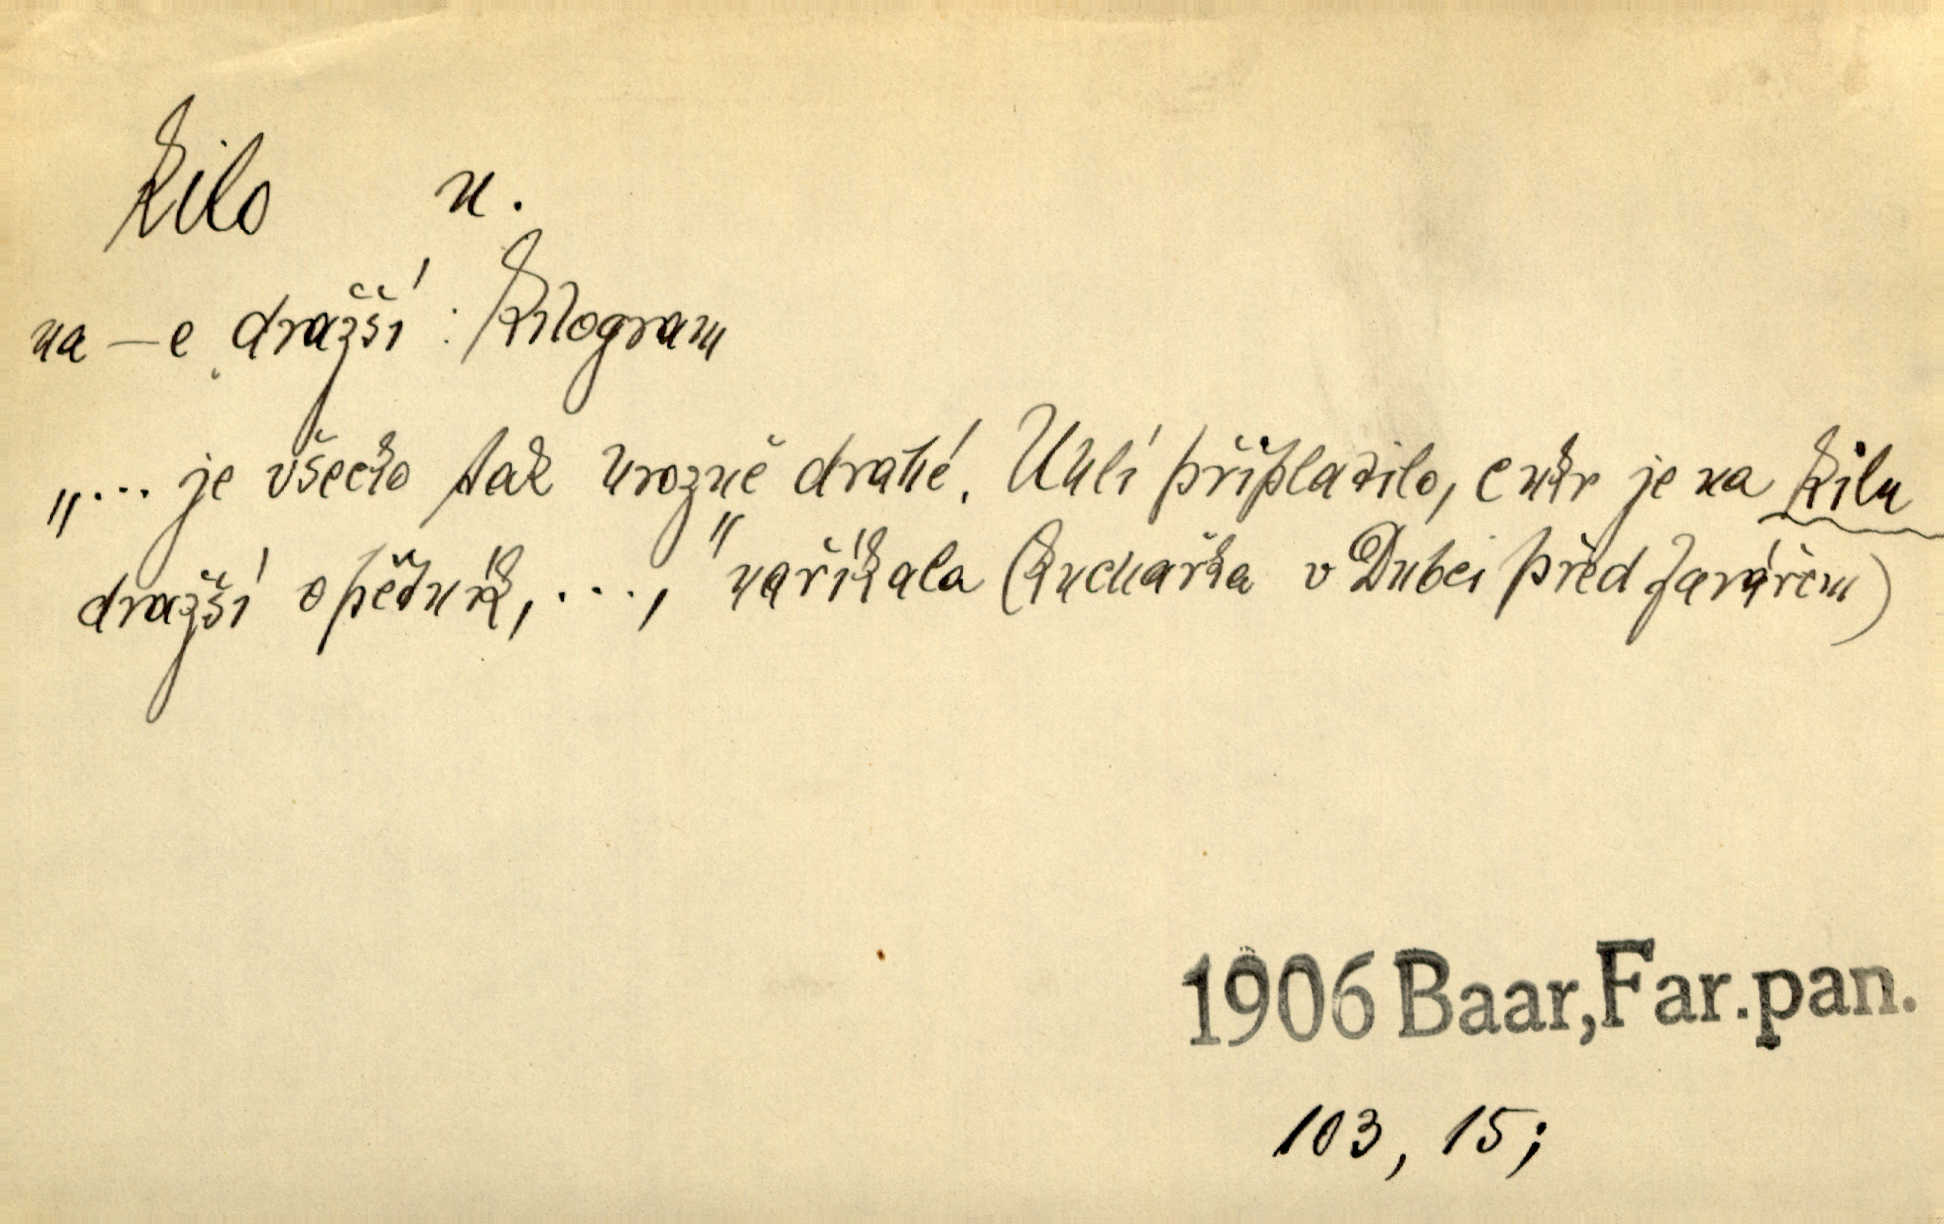 kilo n.
na —e dražší : kilogram
„... je všecko tak hrozně drahé. Uhlí připlatilo, cukr je na kilu
dražší o pětník, ...," naříkala (kuchařka v Dubci před farářem)
1906 Baar, Far. pan.
103, 15;